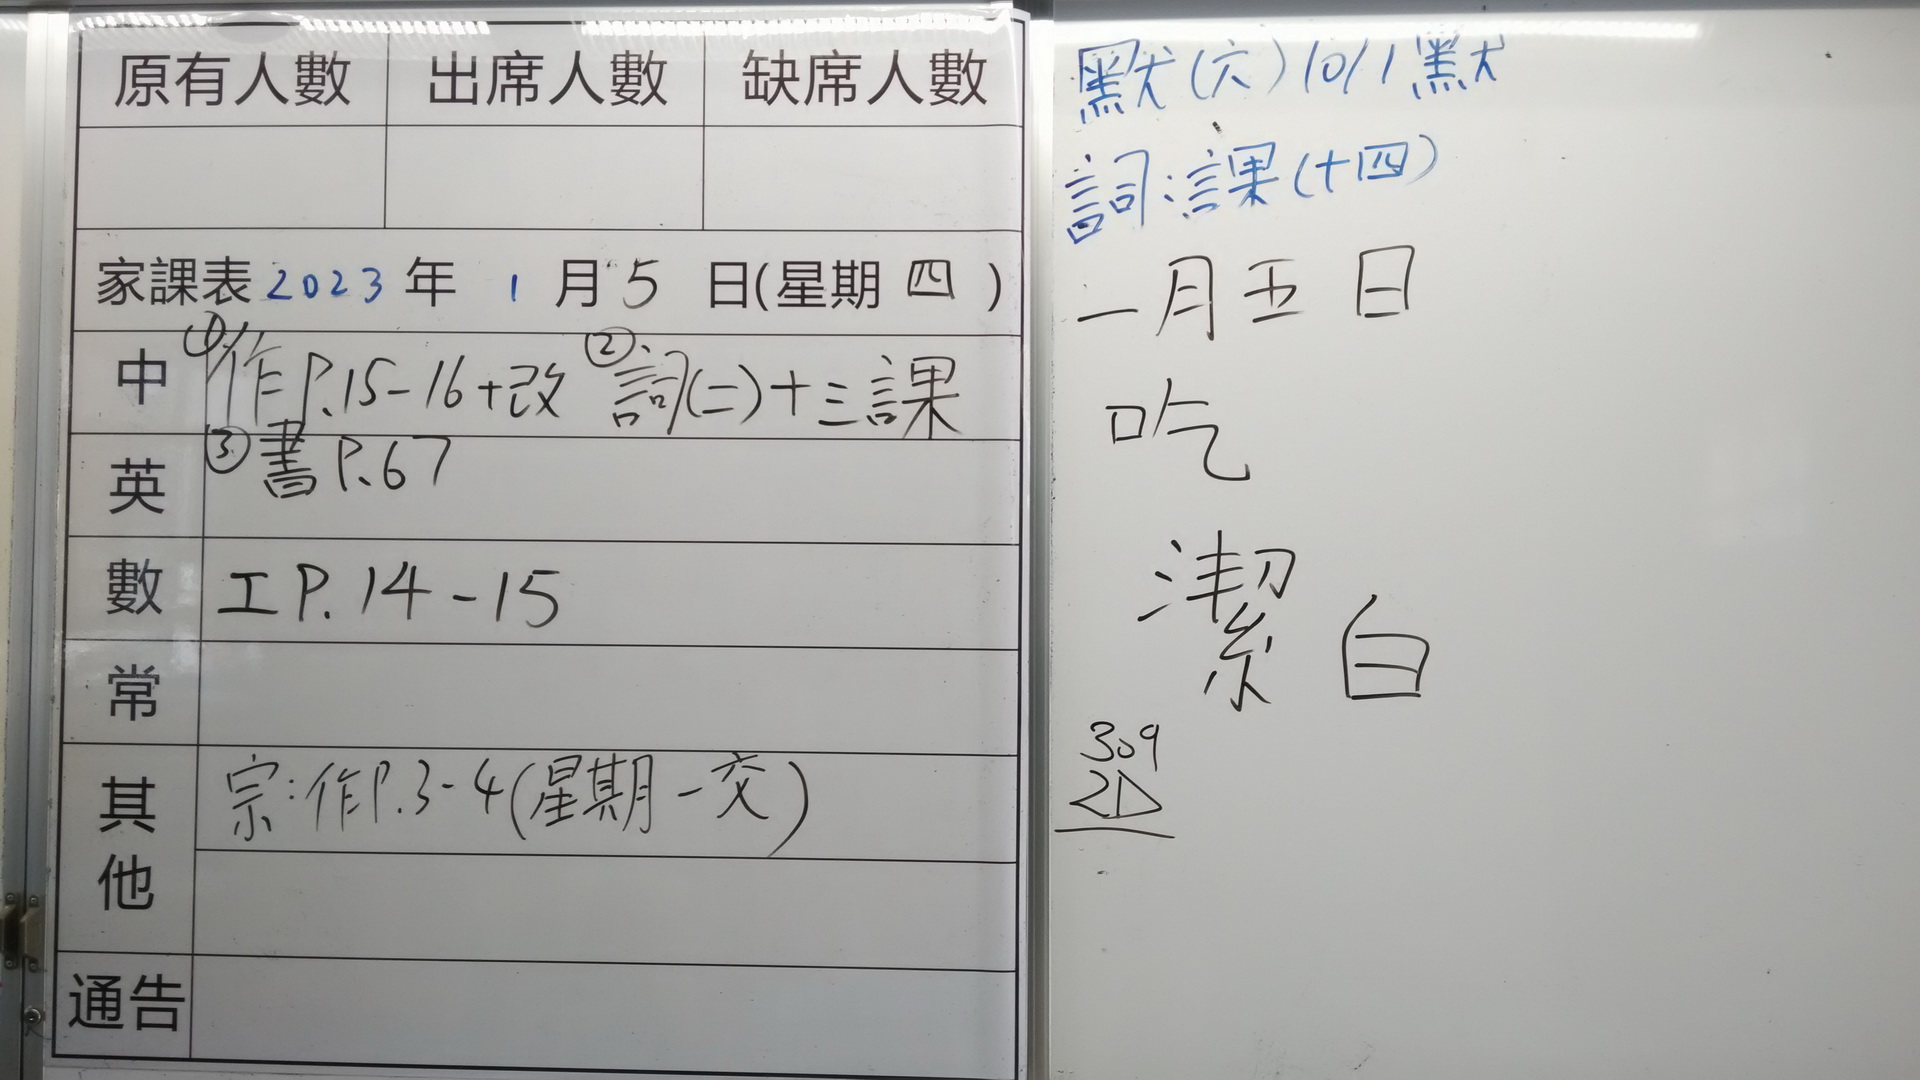 原有人數 出席人數 缺席人數
家課表 2023 年 1 月 5 日(星期 四 )
中 ①作P.15-16+改 ②詞(二)十三課
英 ③書P.67
數 工P.14-15
常
其他 宗:作P.3-4(星期一交)
通告
默(六)10/1默
詞:課(十四)
一月五日
吃
潔白
309